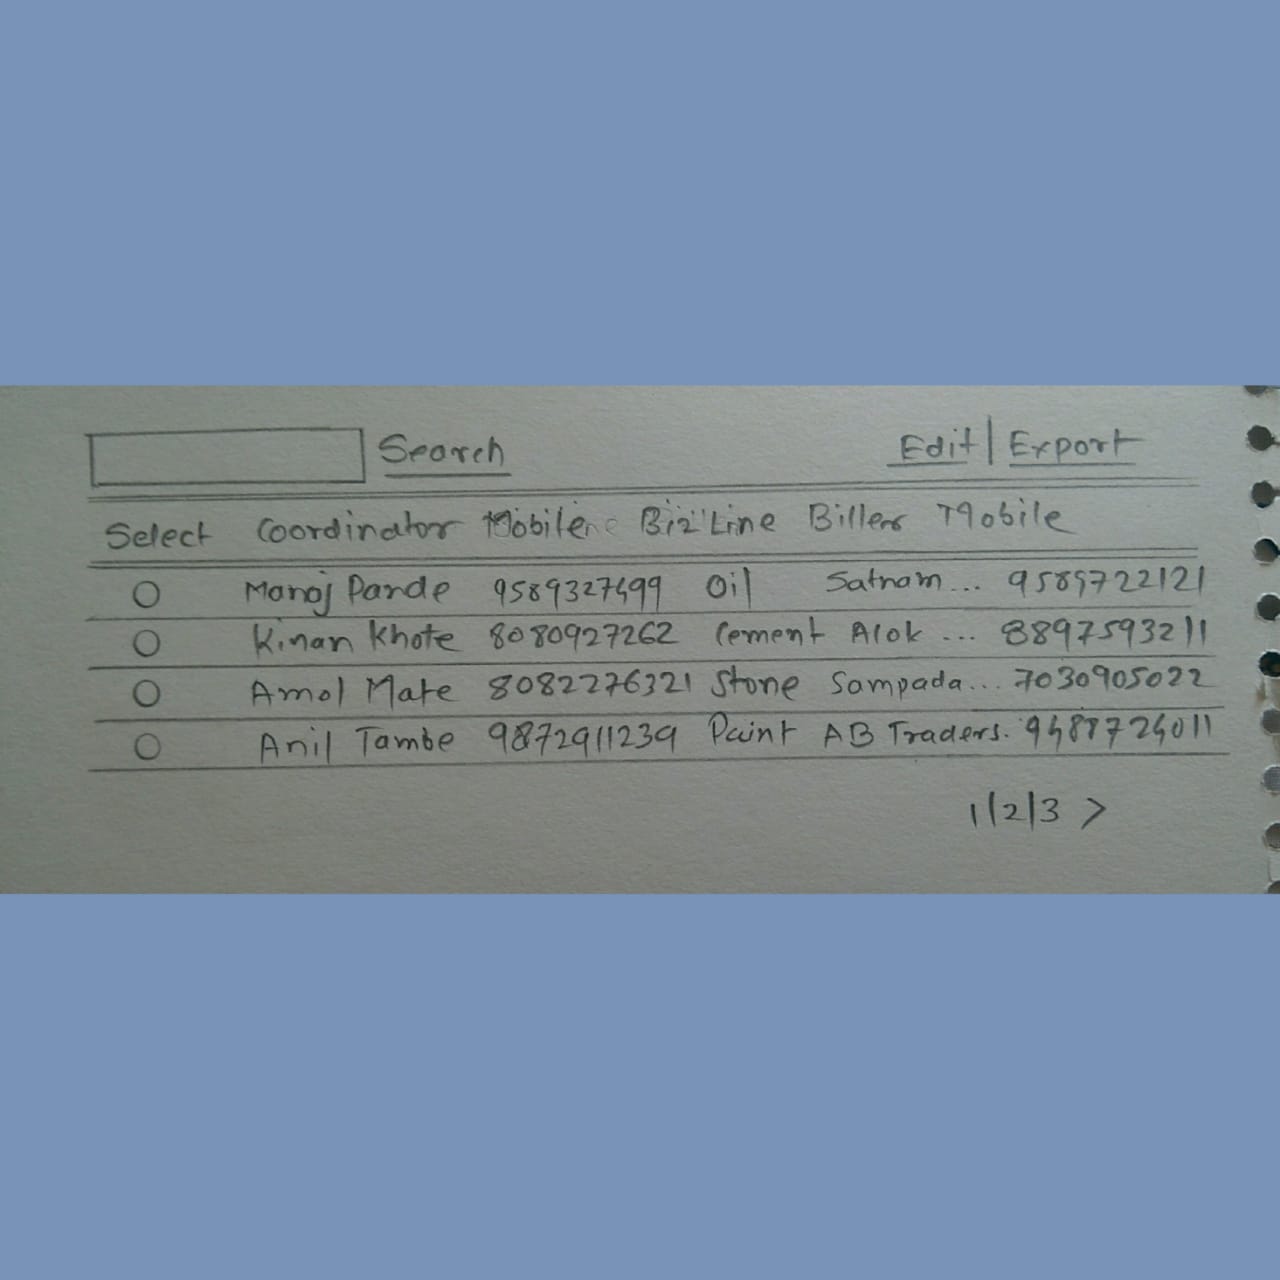 Search Edit | Export
Select Coordinator Mobile Biz Line Biller Mobile
Manoj Pande 9589327499 Oil Satnam... 9589722121
Kinan Khote 8080927262 Cement Alok ... 8897593211
Amol Mate 8082276321 Stone Sampada... 7030905022
Anil Tambe 9872911239 Paint AB Traders. 9488724011
1|2|3 >